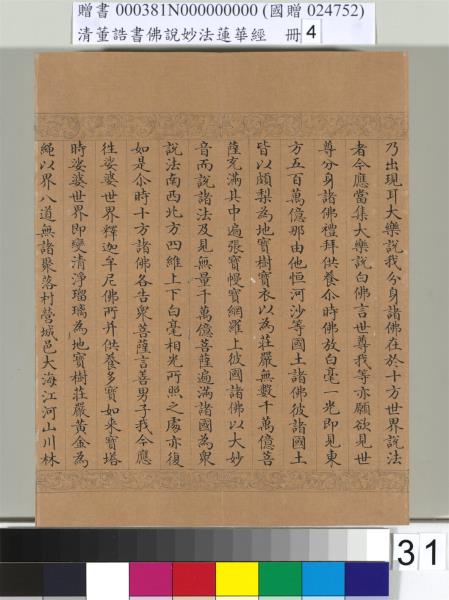 贈書 000381N000000000 (國贈 024752)
清董誥書佛說妙法蓮華經 冊 4
乃出現耳大樂說我分身諸佛在於十方世界說法
者今應當集大樂說白佛言世尊我等亦願欲見世
尊分身諸佛禮拜供養尒時佛放白毫一光即見東
方五百萬億那由他恒河沙等國土諸佛彼諸國土
皆以頗棃為地寶樹寶衣以為莊嚴無數千萬億菩
薩充滿其中遍張寶幔寶網羅上彼國諸佛以大妙
音而說諸法及見無量千萬億菩薩遍滿諸國為眾
說法南西北方四維上下白毫相光所照之處亦復
如是尒時十方諸佛各告眾菩薩言善男子我今應
徃娑婆世界釋迦牟尼佛所并供養多寶如来寶塔
時娑婆世界即變清淨瑠璃為地寶樹莊嚴黃金為
繩以界八道無諸聚落村營城邑大海江河山川林
31